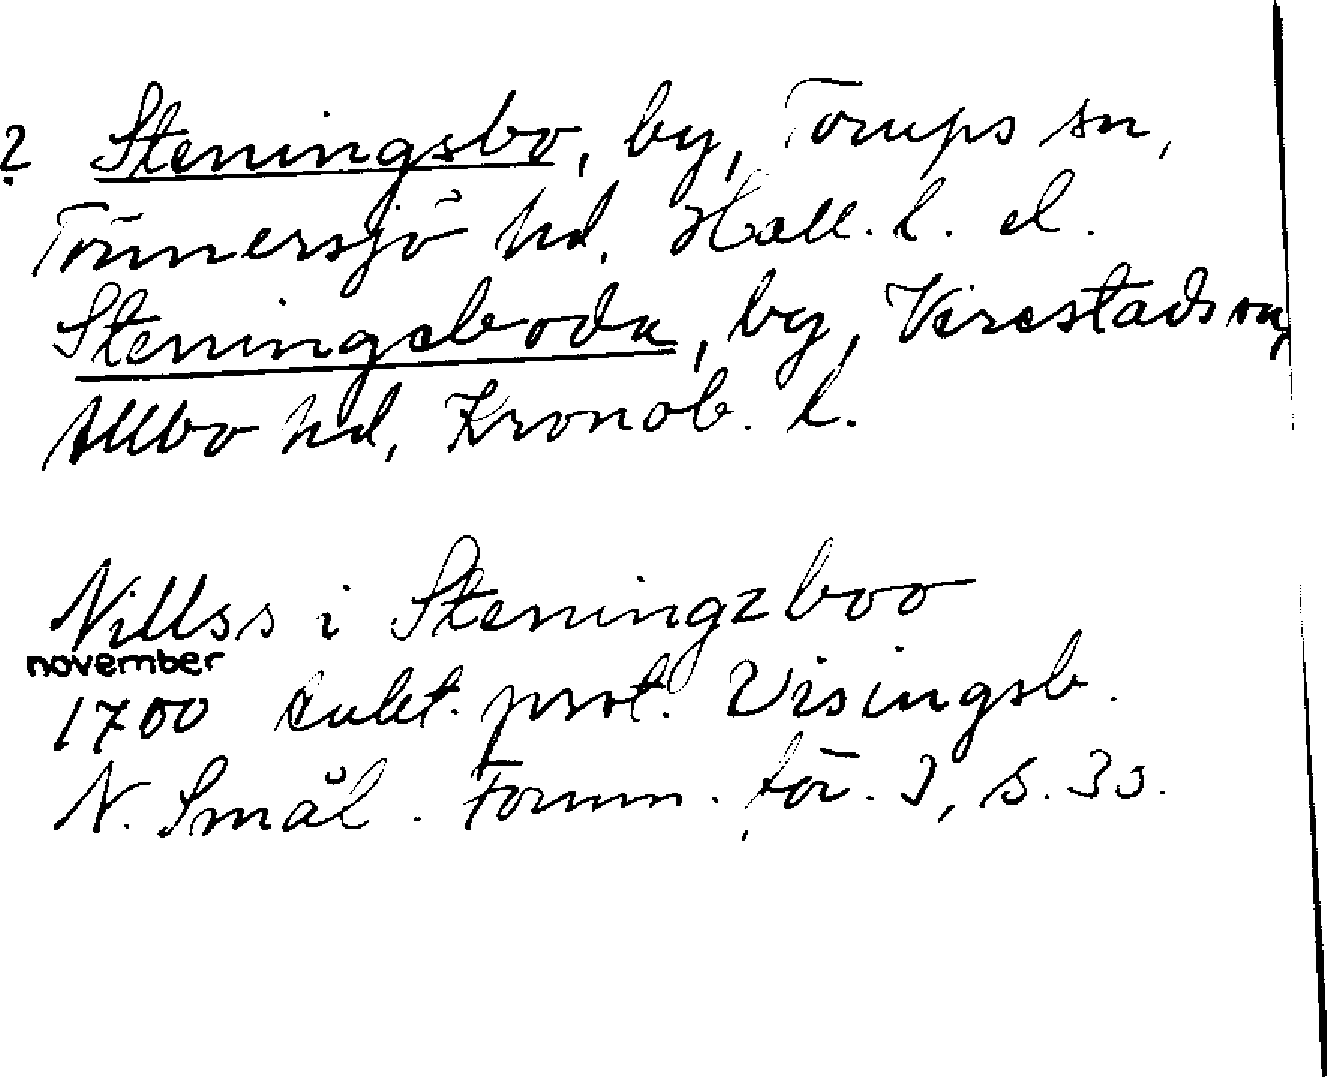 ? Steningsbo, by, Torups sn,
Tönnersjö hd, Hall. l. el.
Steningsboda, by, Virestads sn,
Allbo hd, Kronob. l.
Nillss i Steningzboo
november
1700 aukt. prot. Visingsb.
N. Smål. Fornm. för. I, s. 33.